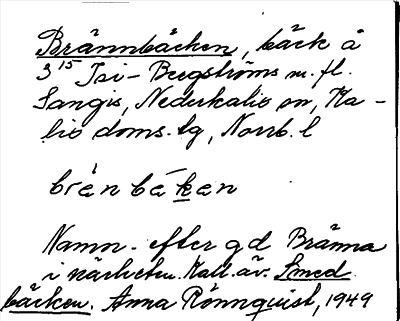 Brännbäcken, bäck å
3¹⁵ Isi-Bergströms m. fl.
Sangis, Nederkalix sn, Ka-
lix doms. tg, Norrb. l
brä́n bä̀ken
Namn. efter gd Bränna
i närheten. Kall. äv. Smed
bäcken. Anna Rönnquist, 1949